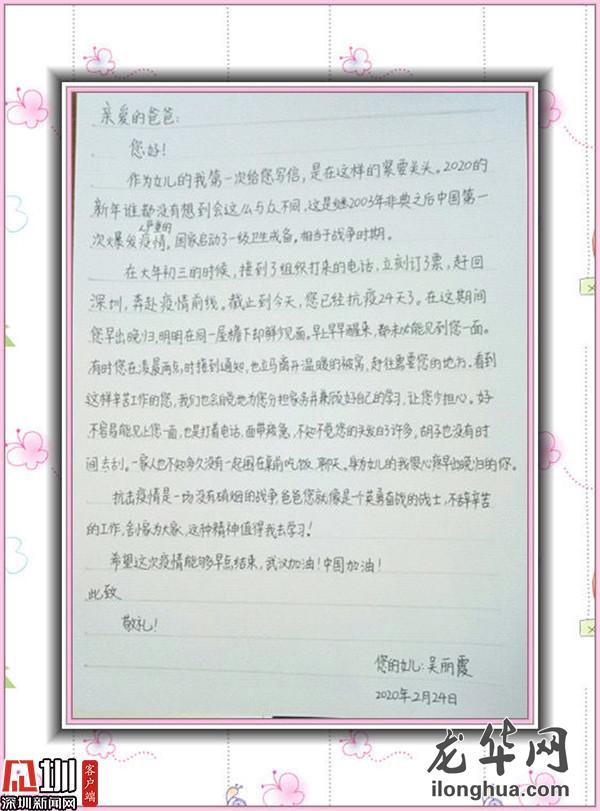 亲爱的爸爸：
您好！
作为女儿的我第一次给您写信，是在这样的紧要关头。2020的
新年谁都没有想到会这么与众不同，这是继2003年非典之后中国第一
次爆发严重的疫情。国家启动了一级卫生戒备。相当于战争时期。
在大年初三的时候，接到了组织打来的电话，立刻订了票，赶回
深圳，奔赴疫情前线。截止到今天，您已经抗疫24天了。在这期间
您早出晚归，明明在同一屋檐下却鲜少见面。早上早早醒来，都未必能见到您一面。
有时您在凌晨两点，时接到通知，也立马离开温暖的被窝，赶往需要您的地方。看到
这样辛苦工作的您，我们也会自觉地为您分担家务并兼顾好自己的学习，让您少担心。好
不容易能见上您一面，也是打着电话，面带疲惫，不知不觉您的头发白了许多，胡子也没有时
间去刮。一家人也不知多久没有一起围在桌前吃饭，聊天。身为女儿的我很心疼早出晚归的你。
抗击疫情是一场没有硝烟的战争，爸爸您就像是个英勇奋战的战士，不辞辛苦
的工作，舍小家为大家，这种精神值得我去学习！
希望这次疫情能够早点结束，武汉加油！中国加油！
此致
敬礼！
您的女儿：吴丽霞
2020年2月24日
深圳新闻网
客户端
龙华网
ilonghua.com